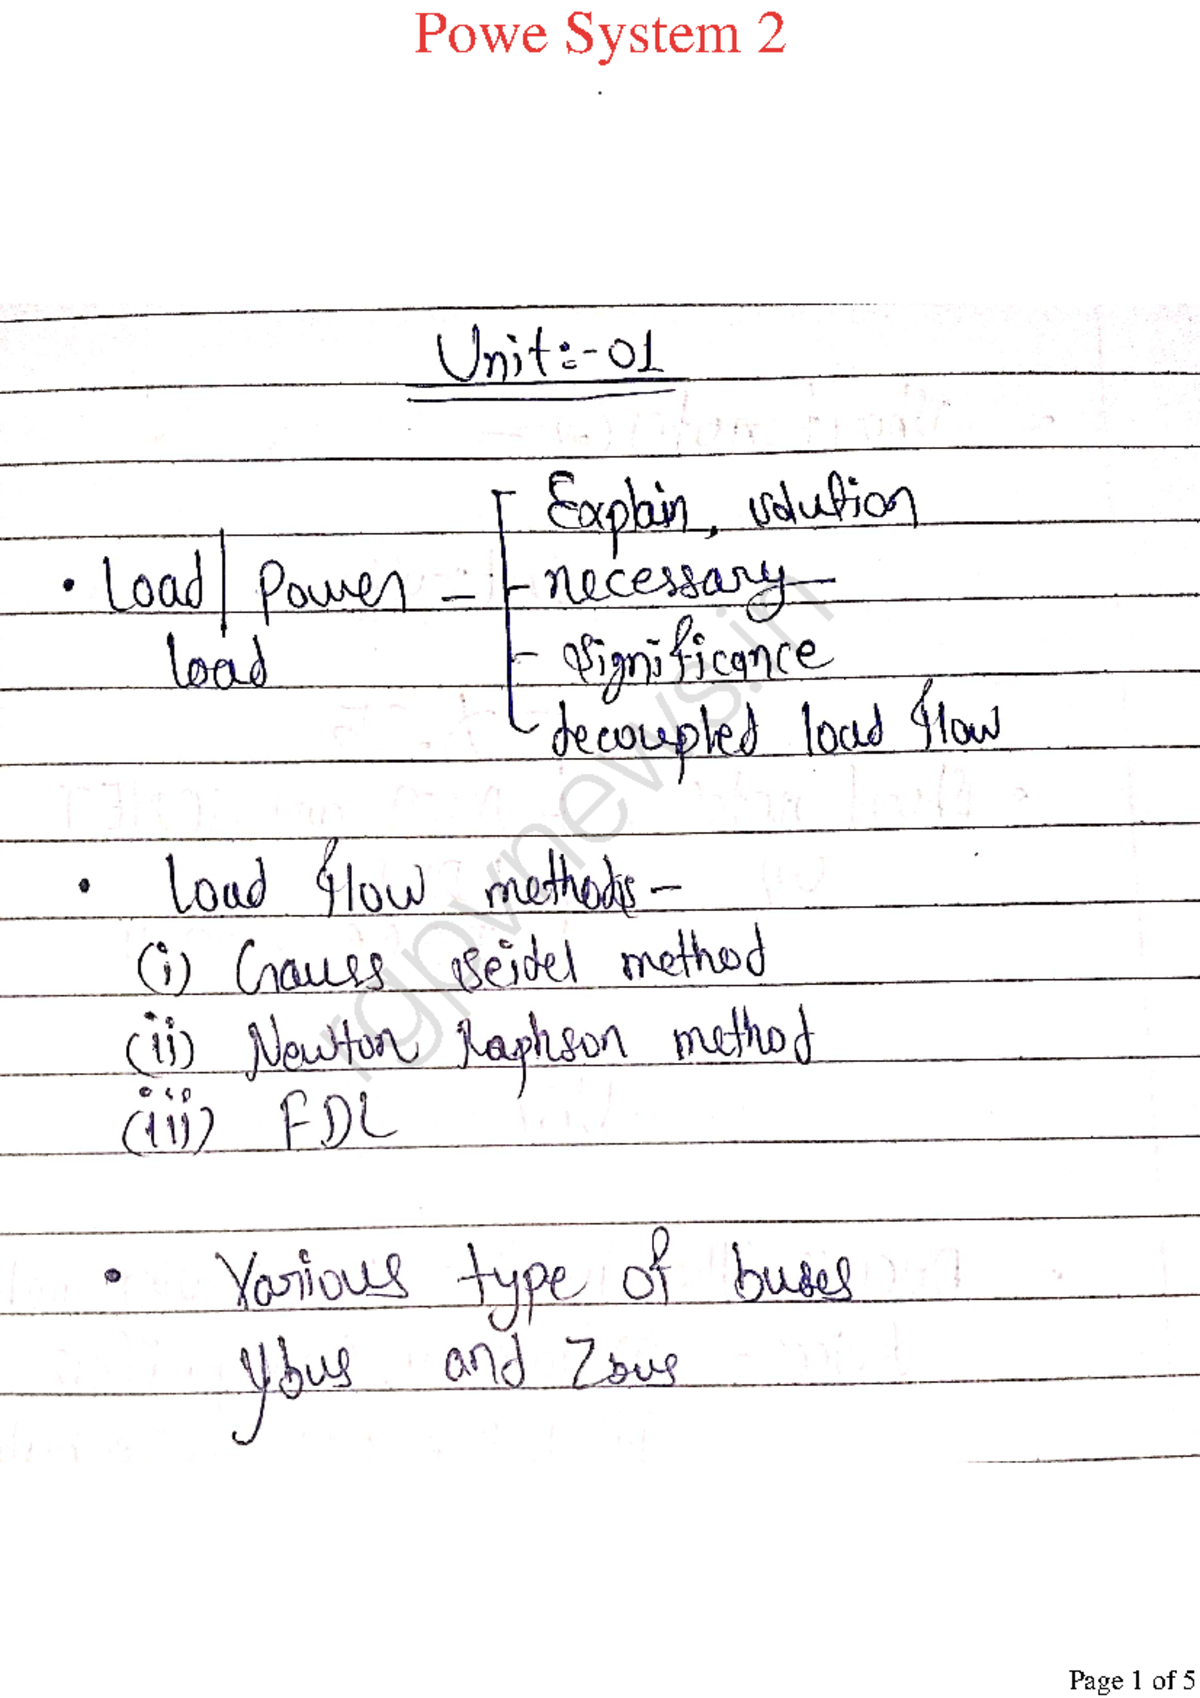 Powe System 2
Unit:-01
Explain, solution
• Load | Power - - necessary
load - significance
decoupled load flow
• Load flow methods -
(i) Gauss Seidel method
(ii) Newton Raphson method
(iii) FDL
• Various type of buses
Ybus and Zbus
rgpvnews.in
Page 1 of 5